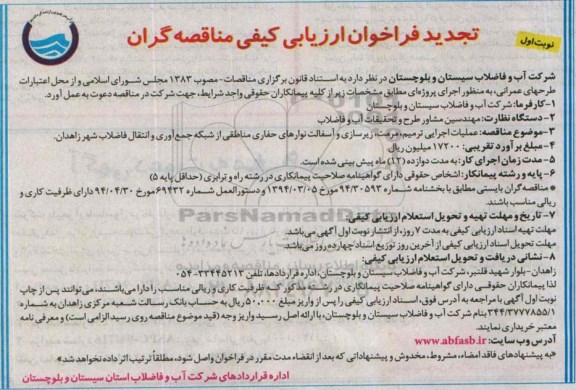 تجدید فراخوان ارزیابی کیفی مناقصه گران
نوبت اول
شرکت آب و فاضلاب سیستان و بلوچستان در نظر دارد به استناد قانون برگزاری مناقصات - مصوب ۱۳۸۳ مجلس شورای اسلامی و از محل اعتبارات
طرحهای عمرانی، به منظور اجرای پروژه‌ای مطابق مشخصات زیر از کلیه پیمانکاران حقوقی واجد شرایط، جهت شرکت در مناقصه دعوت به عمل آورد.
۱- کارفرما: شرکت آب و فاضلاب سیستان و بلوچستان
۲- دستگاه نظارت: مهندسین مشاور طرح و تحقیقات آب و فاضلاب
۳- موضوع مناقصه: عملیات اجرایی ترمیم، مرمت، زیرسازی و آسفالت نوارهای حفاری مناطقی از شبکه جمع آوری و انتقال فاضلاب شهر زاهدان.
۴- مبلغ برآورد تقریبی: ۱۷۲۰۰ میلیون ریال
۵- مدت زمان اجرای کار: به مدت دوازده (۱۲) ماه پیش بینی شده است.
۶- پایه و رشته پیمانکار: اشخاص حقوقی دارای گواهینامه صلاحیت پیمانکاری در رشته راه و ترابری (حداقل پایه ۵)
* مناقصه گران بایستی مطابق با بخشنامه شماره ۹۴/۳۰۵۹۳ مورخ ۱۳۹۴/۰۳/۰۵ و دستورالعمل شماره ۶۹۴۳۲ مورخ ۹۴/۰۴/۳۰ دارای ظرفیت کاری و
ریالی مناسب باشند.
۷- تاریخ و مهلت تهیه و تحویل استعلام ارزیابی کیفی:
مهلت تهیه اسناد ارزیابی کیفی به مدت ۷ روز، از انتشار نوبت اول آگهی می‌باشد.
مهلت تحویل اسناد ارزیابی کیفی از آخرین روز توزیع اسناد چهارده روز می‌باشد.
۸- نشانی دریافت و تحویل استعلام ارزیابی کیفی:
زاهدان - بلوار شهید قلنبر، شرکت آب و فاضلاب سیستان و بلوچستان، اداره قراردادها، تلفن ۳۳۴۴۵۲۱۳-۰۵۴
لذا پیمانکاران حقوقی دارای گواهینامه صلاحیت پیمانکاری در رشته مذکور که ظرفیت کاری و ریالی مناسب را دارا می‌باشند، می‌توانند پس از چاپ
نوبت اول آگهی با مراجعه به آدرس فوق، اسناد ارزیابی کیفی را پس از واریز مبلغ ۵۰،۰۰۰ ریال به حساب بانک رسالت شعبه مرکزی زاهدان به شماره:
۳۴۴/۳۷۷۷۸۵۵/۱ بنام شرکت آب و فاضلاب سیستان و بلوچستان، با ارائه اصل رسید واریز وجه (قید موضوع مناقصه روی رسید الزامی است) و معرفی نامه
معتبر خریداری نمایند.
آدرس وب سایت: www.abfasb.ir
«به پیشنهادهای فاقد امضاء، مشروط، مخدوش و پیشنهاداتی که بعد از انقضاء مدت مقرر در فراخوان واصل شود، مطلقاً ترتیب اثر داده نخواهد شد.»
اداره قراردادهای شرکت آب و فاضلاب استان سیستان و بلوچستان